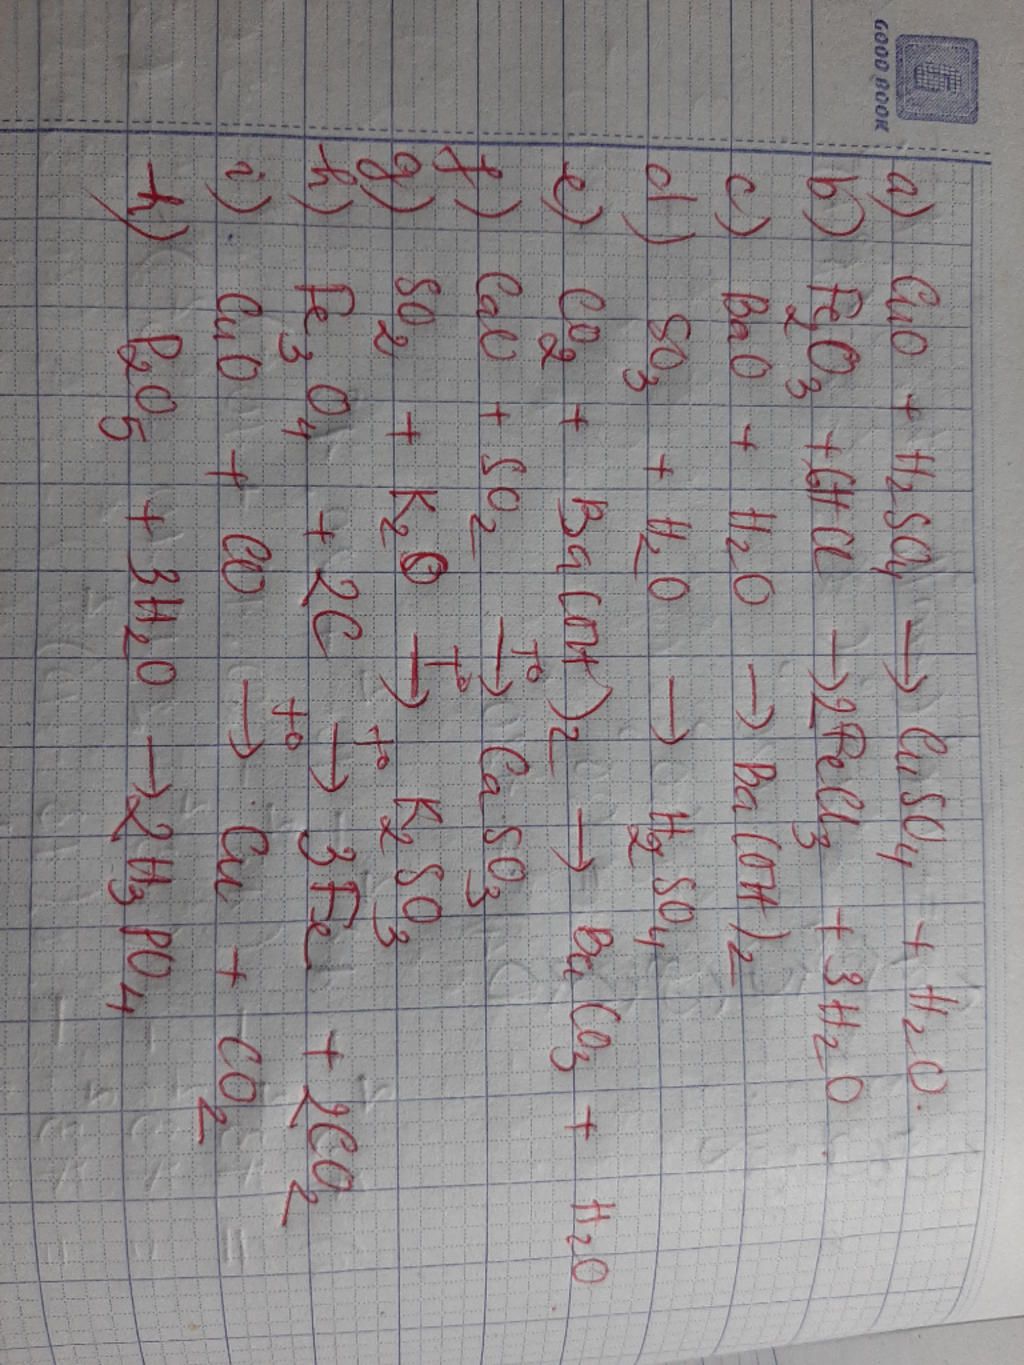 GOOD BOOK
a) CuO + H₂SO₄ → CuSO₄ + H₂O.
b) Fe₂O₃ + 6HCl → 2FeCl₃ + 3H₂O
c) BaO + H₂O → Ba(OH)₂
d) SO₃ + H₂O → H₂SO₄
e) CO₂ + Ba(OH)₂ → BaCO₃ + H₂O
f) CaO + SO₂ →T° CaSO₃
g) SO₂ + K₂O →T° K₂SO₃
h) Fe₃O₄ + 2C →t° 3Fe + 2CO₂
i) CuO + CO →t° Cu + CO₂
h) P₂O₅ + 3H₂O → 2H₃PO₄